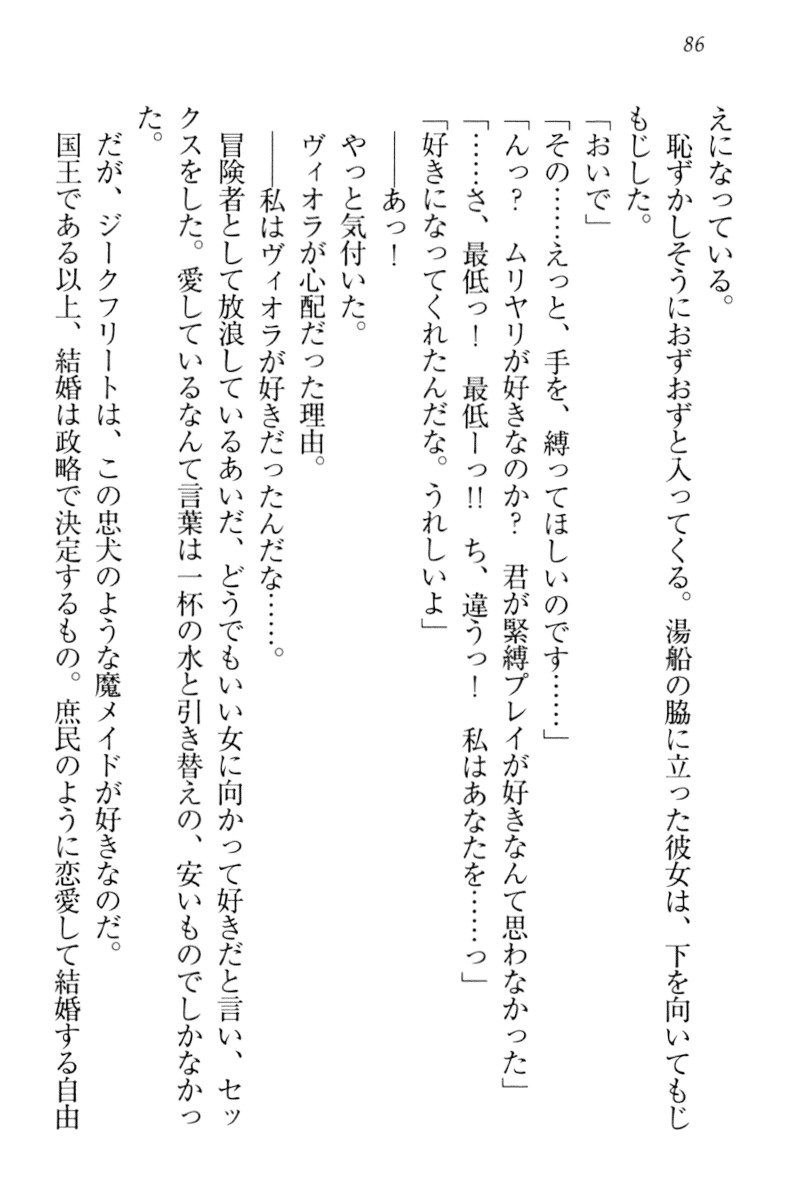 86
えになっている。
　恥ずかしそうにおずおずと入ってくる。湯船の脇に立った彼女は、下を向いてもじ
もじした。
「おいで」
「その……えっと、手を、縛ってほしいのです……」
「んっ？　ムリヤリが好きなのか？　君が緊縛プレイが好きなんて思わなかった」
「……さ、最低っ！　最低ーっ!!　ち、違うっ！　私はあなたを……っ」
「好きになってくれたんだな。うれしいよ」
　――あっ！
　やっと気付いた。
　ヴィオラが心配だった理由。
　――私はヴィオラが好きだったんだな……。
　冒険者として放浪しているあいだ、どうでもいい女に向かって好きだと言い、セッ
クスをした。愛しているなんて言葉は一杯の水と引き替えの、安いものでしかなかっ
た。
　だが、ジークフリートは、この忠犬のような魔メイドが好きなのだ。
　国王である以上、結婚は政略で決定するもの。庶民のように恋愛して結婚する自由